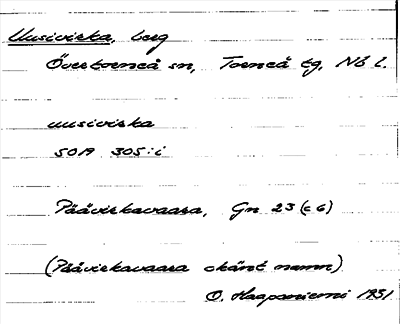 Uusivirka, berg
Övertorneå sn, Torneå tg, Nb l.
uusivirka
5019 305:i
Päävirkavaara, Gn 23 (c 6)
(Päävirkavaara okänt namn)
O. Haapaniemi 1931